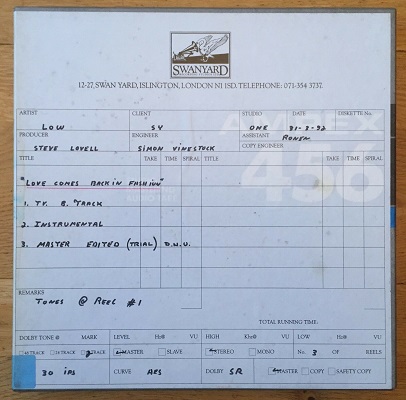 SWANYARD
12-27, SWAN YARD, ISLINGTON, LONDON N1 1SD. TELEPHONE: 071-354 3737.
ARTIST CLIENT STUDIO DATE DISKETTE No.
LOW SY ONE 31-3-92
PRODUCER ENGINEER ASSISTANT RONEN
STEVE LOVELL SIMON VINESTOCK COPY ENGINEER
TITLE TAKE TIME SPIRAL TITLE TAKE TIME SPIRAL
AMPEX
456
"LOVE COMES BACK IN FASHION"
1. TV. B. TRACK
2. INSTRUMENTAL
3. MASTER EDITED (TRIAL) D.N.U.
REMARKS
TONES @ REEL #1
TOTAL RUNNING TIME:
DOLBY TONE @ MARK LEVEL Hz@ VU HIGH Khz@ VU LOW Hz@ VU
TRACK 24 TRACK 2 TRACK MASTER SLAVE STEREO MONO No. 3 OF REELS
30 IPS CURVE AES DOLBY SR MASTER COPY SAFETY COPY